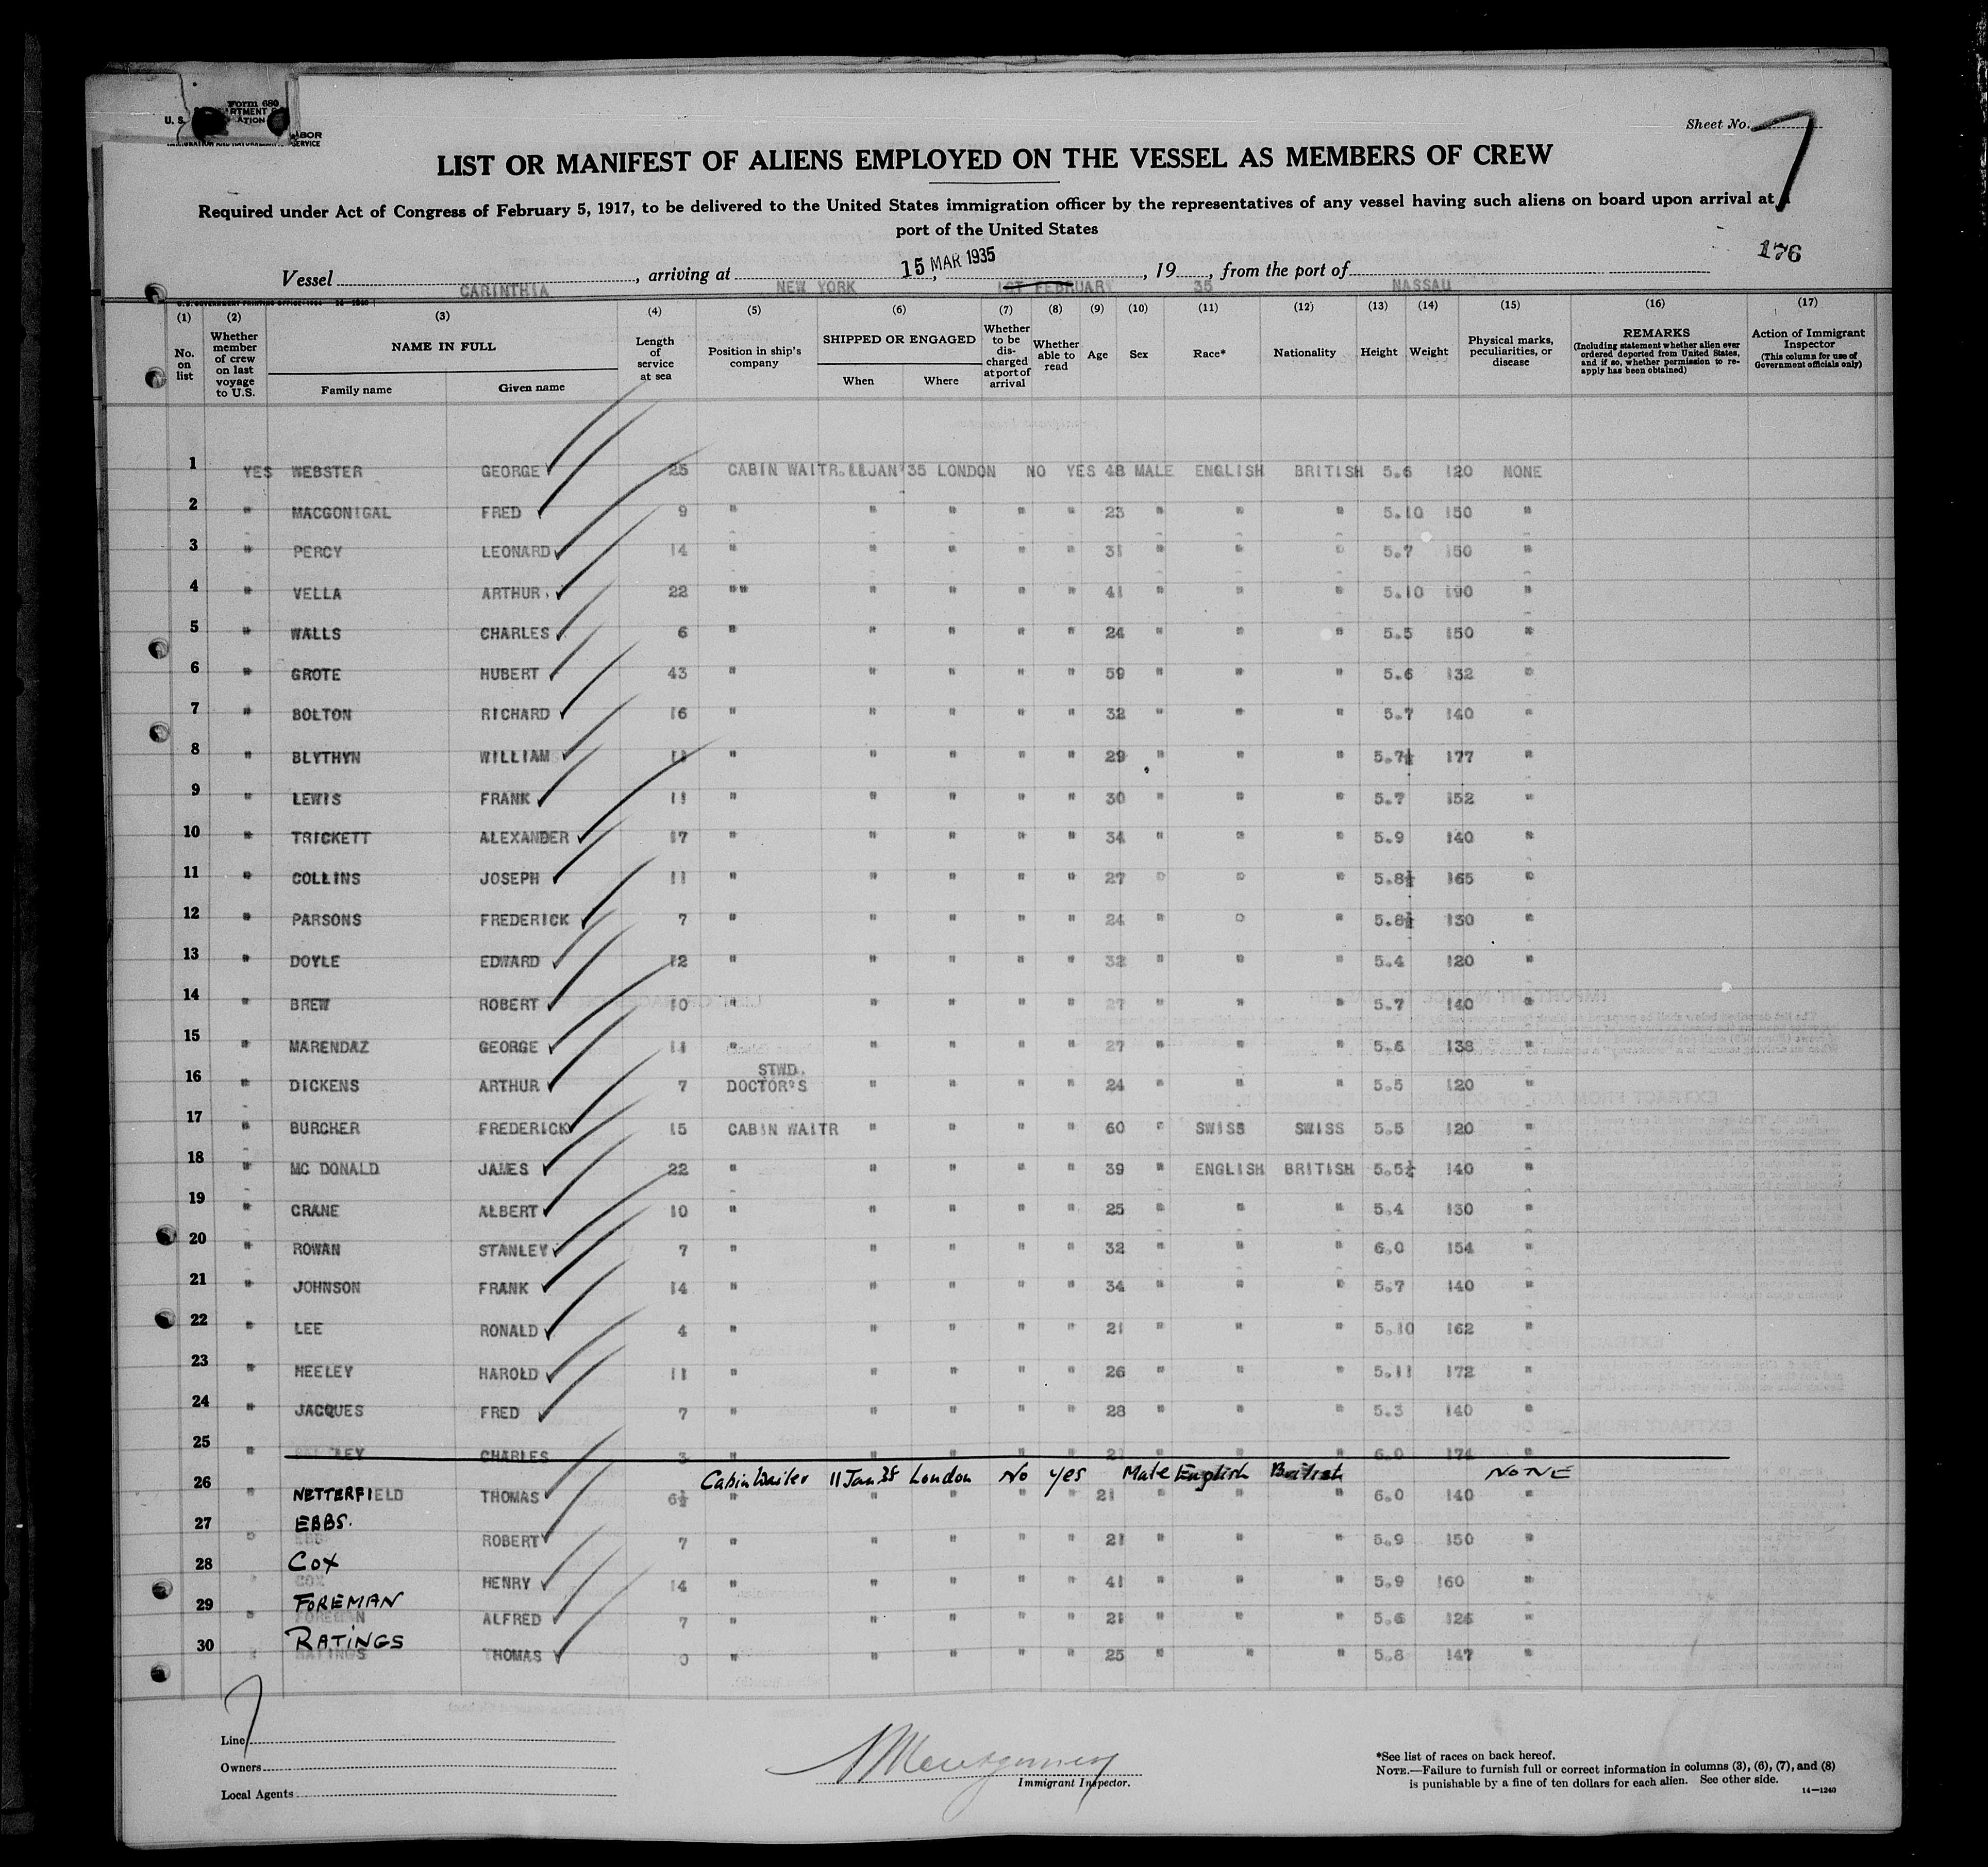 Form 680
U. S.
LIST OR MANIFEST OF ALIENS EMPLOYED ON THE VESSEL AS MEMBERS OF CREW
Sheet No. 7
Required under Act of Congress of February 5, 1917, to be delivered to the United States immigration officer by the representatives of any vessel having such aliens on board upon arrival at a
port of the United States
176
Vessel CARINTHIA, arriving at NEW YORK 15 MAR 1935 1ST FEBRUARY, 19 35, from the port of NASSAU
(1) (2) (3) (4) (5) (6) (7) (8) (9) (10) (11) (12) (13) (14) (15) (16) (17)
No. on list
Whether member of crew on last voyage to U.S.
NAME IN FULL
Family name
Given name
Length of service at sea
Position in ship's company
SHIPPED OR ENGAGED
When
Where
Whether to be discharged at port of arrival
Whether able to read
Age
Sex
Race*
Nationality
Height
Weight
Physical marks, peculiarities, or disease
REMARKS
(Including statement whether alien ever ordered deported from United States, and if so, whether permission to re-apply has been obtained)
Action of Immigrant Inspector
(This column for use of Government officials only)
1 YES WEBSTER GEORGE 25 CABIN WAITR. 11JAN'35 LONDON NO YES 48 MALE ENGLISH BRITISH 5.6 120 NONE
2 " MACGONIGAL FRED 9 " " " " " 23 " " " 5.10 150 "
3 " PERCY LEONARD 14 " " " " " 31 " " " 5.7 150 "
4 " VELLA ARTHUR. 22 "" " " " " 41 " " " 5.10 190 "
5 " WALLS CHARLES 6 " " " " " 24 " " " 5.5 150 "
6 " GROTE HUBERT 43 " " " " " 59 " " " 5.6 132 "
7 " BOLTON RICHARD 16 " " " " " 32 " " " 5.7 140 "
8 " BLYTHYN WILLIAM 11 " " " " " 29 " " " 5.7½ 177 "
9 " LEWIS FRANK 11 " " " " " 30 " " " 5.7 152 "
10 " TRICKETT ALEXANDER 17 " " " " " 34 " " " 5.9 140 "
11 " COLLINS JOSEPH 11 " " " " " 27 " " " 5.8½ 165 "
12 " PARSONS FREDERICK 7 " " " " " 24 " " " 5.8½ 130 "
13 " DOYLE EDWARD 12 " " " " " 32 " " " 5.4 120 "
14 " BREW ROBERT 10 " " " " " 27 " " " 5.7 140 "
15 " MARENDAZ GEORGE 11 " " " " " 27 " " " 5.6 138 "
STWD.
16 " DICKENS ARTHUR 7 DOCTOR'S " " " " 24 " " " 5.5 120 "
17 " BURCHER FREDERICK 15 CABIN WAITR " " " " 60 " SWISS SWISS 5.5 120 "
18 " MC DONALD JAMES 22 " " " " " 39 " ENGLISH BRITISH 5.5½ 140 "
19 " CRANE ALBERT 10 " " " " " 25 " " " 5.4 130 "
20 " ROWAN STANLEY 7 " " " " " 32 " " " 6.0 154 "
21 " JOHNSON FRANK 14 " " " " " 34 " " " 5.7 140 "
22 " LEE RONALD 4 " " " " " 21 " " " 5.10 162 "
23 " HEELEY HAROLD 11 " " " " " 26 " " " 5.11 172 "
24 " JACQUES FRED 7 " " " " " 28 " " " 5.3 140 "
25 " CHARLES 3 " " " " " 21 " " " 6.0 174 "
Cabin Waiter 11 Jan 35 London No yes Male English British NONE
26 " NETTERFIELD THOMAS 6½ " " " " " 21 " " " 6.0 140 "
27 " EBBS. ROBERT 7 " " " " " 21 " " " 5.9 150 "
28 " Cox HENRY 14 " " " " " 41 " " " 5.9 160 "
29 " FOREMAN ALFRED 7 " " " " " 21 " " " 5.6 126 "
30 " RATINGS THOMAS " " " " " 25 " " " 5.8 147 "
7
Line
Owners
Local Agents
Montgomery
Immigrant Inspector.
*See list of races on back hereof.
NOTE.—Failure to furnish full or correct information in columns (3), (6), (7), and (8)
is punishable by a fine of ten dollars for each alien. See other side.
14—1240